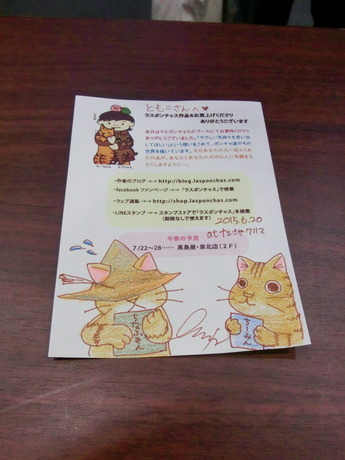 ともこさんへ♥
ラスポンチャス作品をお買上げくださり
ありがとうございます
本日はラスポンチャスのブースにてお買物くださり
ありがとうございました。「やさしい気持ちを思い出
してほしい」という想いをこめて、ポンチャ達やらの
世界を描いています。
・作者のブログ →→ http://blog.lasponchas.com
・facebook ファンページ →→ 「ラスポンチャス」で検索
・ウェブ通販 →→ http://shop.lasponchas.com
・LINEスタンプ →→ スタンプストアで「ラスポンチャス」を検索
(期限なしで使えます)
2015.6.20
at
今後の予定
7/22～28…… 高島屋・泉北店(2F)